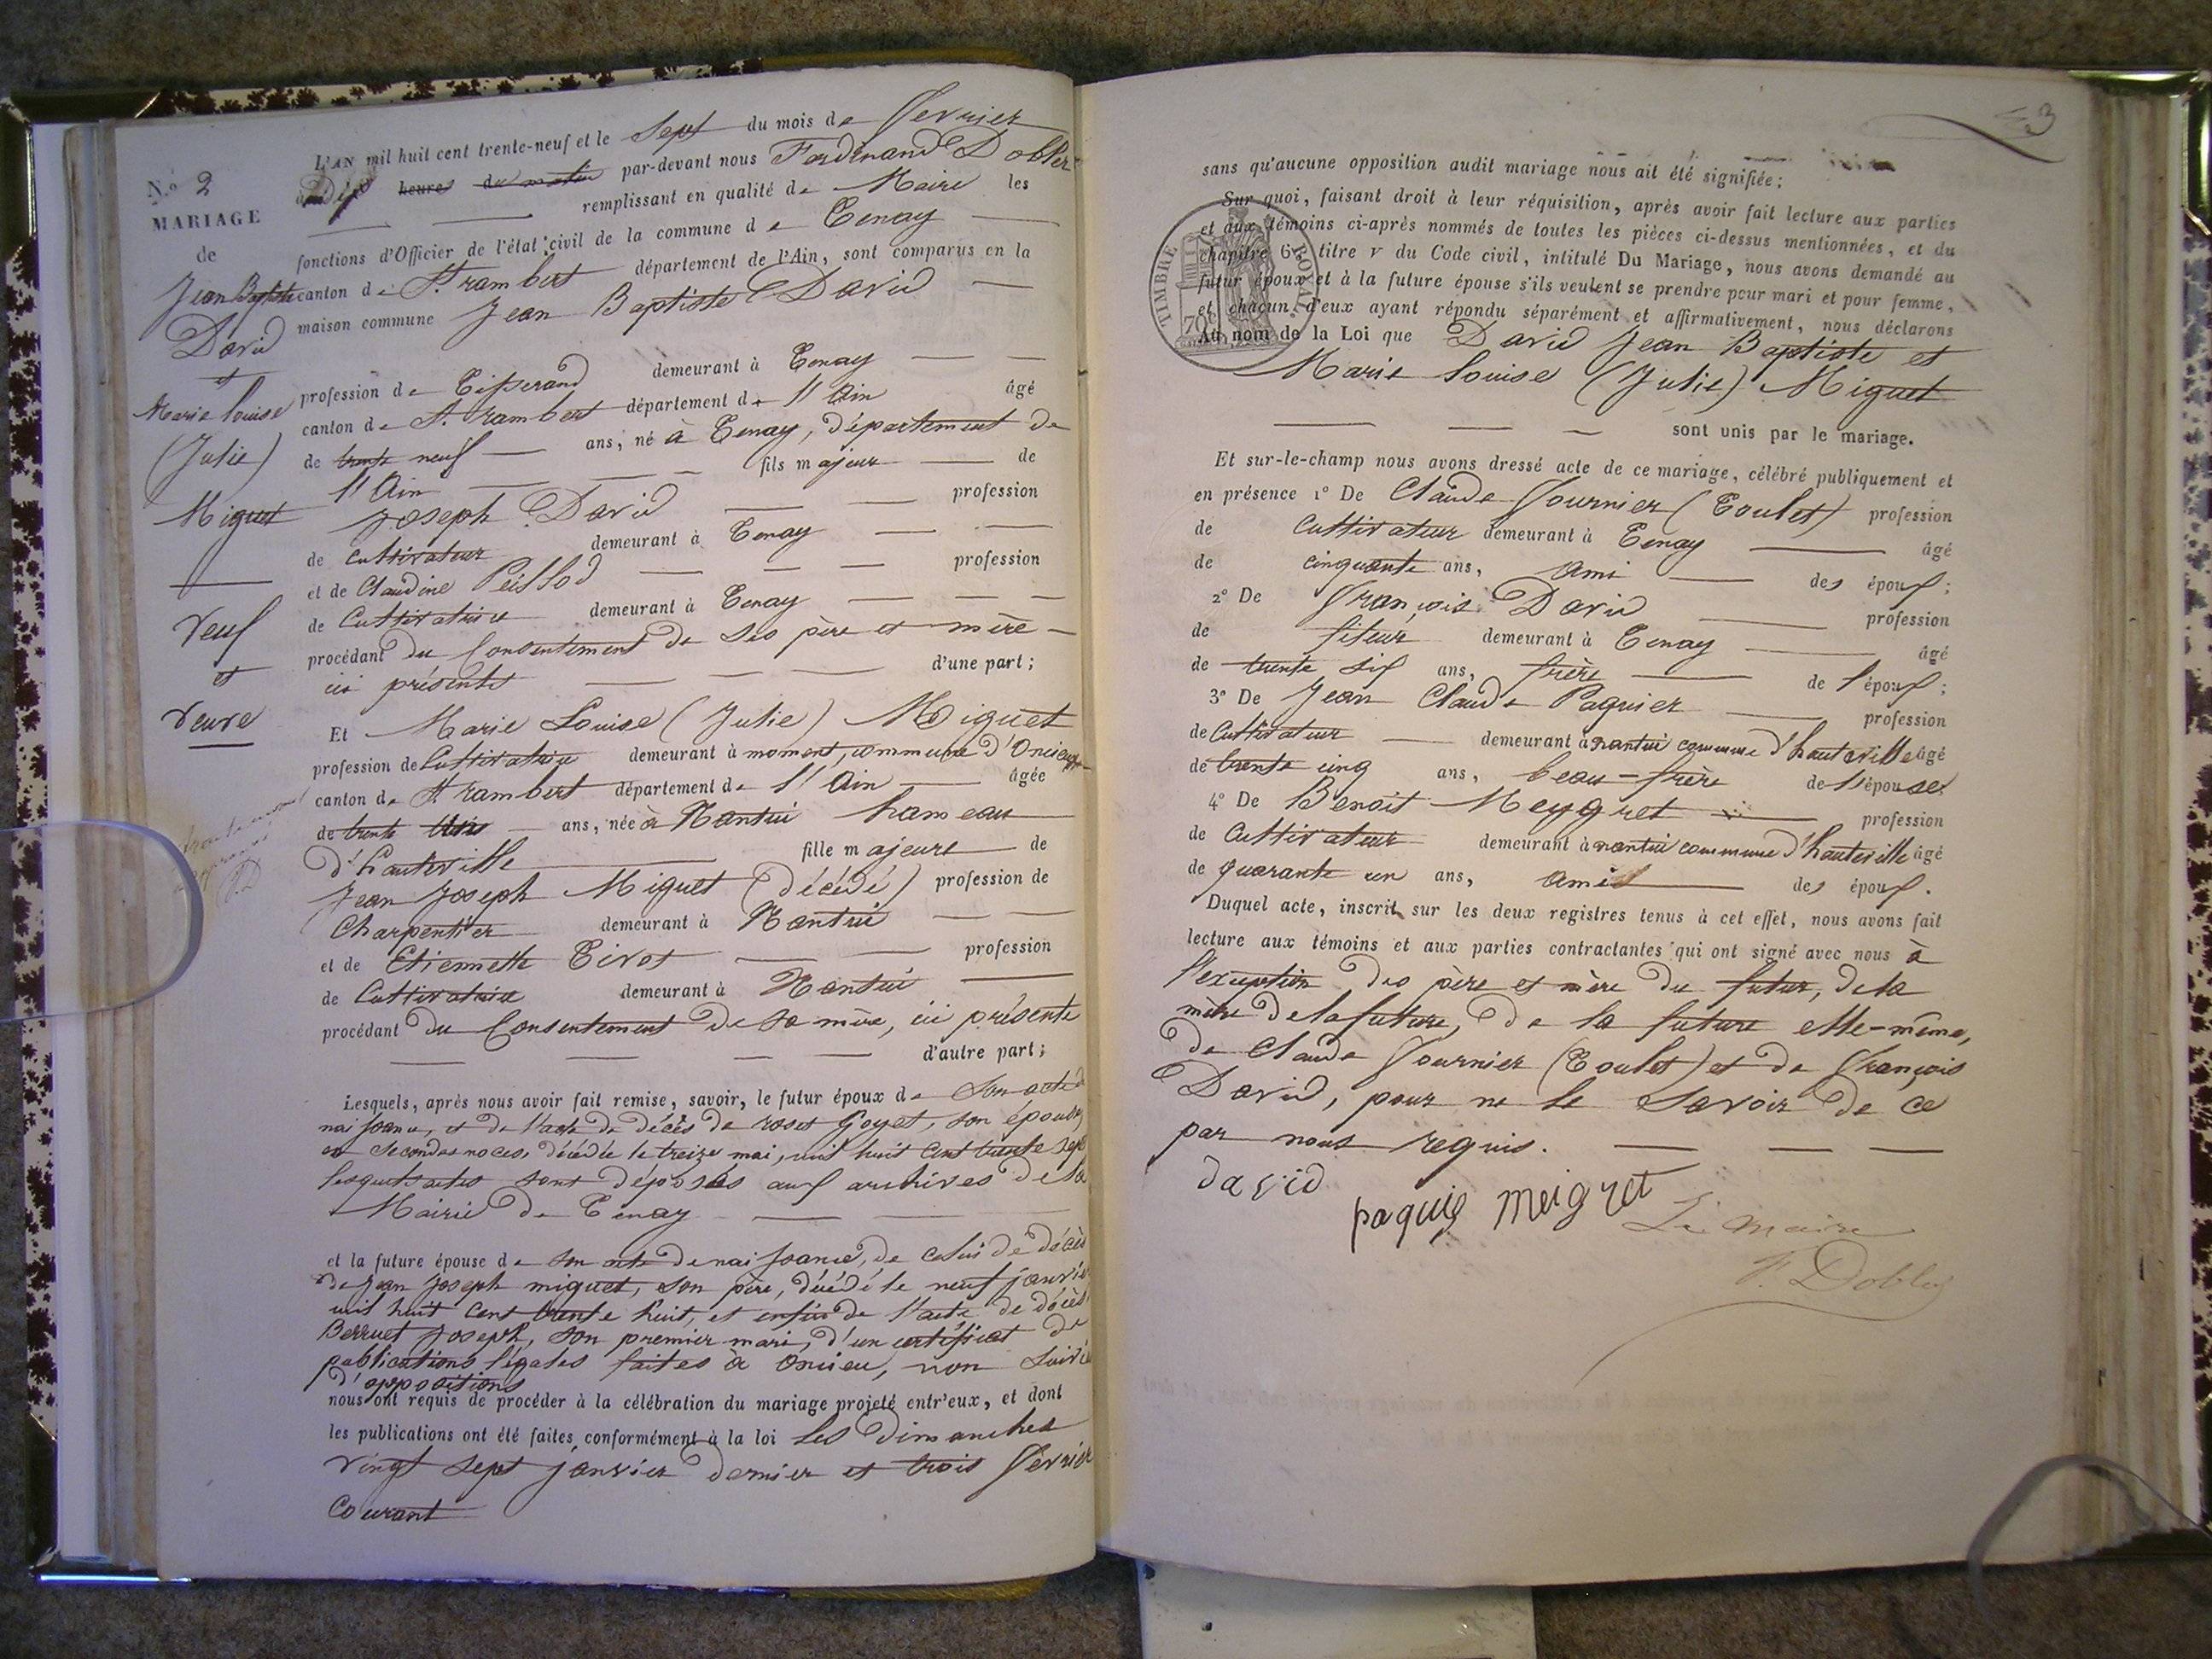 N.º 2
MARIAGE
de
Jean Baptiste
David
et
Marie louise
(Julie)
Miguet
Veuf
et
Veuve
L'AN mil huit cent trente-neuf et le Sept du mois de fevrier
à dix heures du matin par-devant nous Ferdinand Dobler
remplissant en qualité de Maire les
fonctions d'Officier de l'état civil de la commune de Tenay
canton de St. rambert département de l'Ain, sont comparus en la
maison commune Jean Baptiste David
profession de Tisserand demeurant à Tenay
canton de St. rambert département de l'Ain âgé
de trente neuf ans, né à Tenay, département de
l'Ain fils majeur de
Joseph David profession
de Cultivateur demeurant à Tenay
et de Claudine Peissod profession
de Cultivatrice demeurant à Tenay
procédant du Consentement de ses père et mère
ici présents d'une part;
Et Marie Louise (Julie) Miguet
profession de Cultivatrice demeurant à moment, commune d'Oncieux
canton de St rambert département de l'Ain âgée
de trente trois ans, née à Nantui hameau
d'hauteville fille majeure de
Jean Joseph Miguet (décédé) profession de
Charpentier demeurant à Nantui
et de Etiennette Tivot profession
de Cultivatrice demeurant à Nantui
procédant du Consentement de sa mère, ici présente
d'autre part;
Lesquels, après nous avoir fait remise, savoir, le futur époux de Son acte de
naissance, et de l'acte de décès de rose Goyet, son épouse
en Secondes noces, décédée le treize mai, mil huit Cent trente sept
lesquels actes sont déposés aux archives de la
Mairie de Tenay
et la future épouse de son acte de naissance, de celui de décès
de Jean Joseph miguet, son père, décédé le neuf janvier
mil huit Cent trente huit, et enfin de l'acte de décès
Berruet Joseph, son premier mari, d'un certificat de
publications légales faites à oncieu, non suivie
d'oppositions
nous ont requis de procéder à la célébration du mariage projeté entr'eux, et dont
les publications ont été faites conformément à la loi les Dimanches
vingt sept janvier dernier et trois fevrier
Courant
3
sans qu'aucune opposition audit mariage nous ait été signifiée;
Sur quoi, faisant droit à leur réquisition, après avoir fait lecture aux parties
et aux témoins ci-après nommés de toutes les pièces ci-dessus mentionnées, et du
chapitre 6, titre v du Code civil, intitulé Du Mariage, nous avons demandé au
futur époux et à la future épouse s'ils veulent se prendre pour mari et pour femme,
et chacun d'eux ayant répondu séparément et affirmativement, nous déclarons
Au nom de la Loi que David Jean Baptiste et
Marie Louise (Julie) Miguet
sont unis par le mariage.
TIMBRE ROYAL.
70
Et sur-le-champ nous avons dressé acte de ce mariage, célébré publiquement et
en présence 1º De Claude Fournier (Toulet) profession
de Cultivateur demeurant à Tenay âgé
de cinquante ans, ami des époux;
2º De François David profession
de fileur demeurant à Tenay âgé
de trente six ans, frère de l'époux;
3º De Jean Claude Paquier profession
de Cultivateur demeurant à nantui commune d'hauteville âgé
de trente cinq ans, beau-frère de l'épouse;
4º De Benoit Meygret profession
de Cultivateur demeurant à nantui commune d'hauteville âgé
de quarante un ans, ami des époux.
Duquel acte, inscrit sur les deux registres tenus à cet effet, nous avons fait
lecture aux témoins et aux parties contractantes qui ont signé avec nous à
l'exception des père et mère du futur, de la
mère de la future, de la future elle-même,
de Claude Fournier (Toulet) et de François
David, pour ne le Savoir de ce
par nous requis.
david
paquié meigret
Le maire
F. Dobler